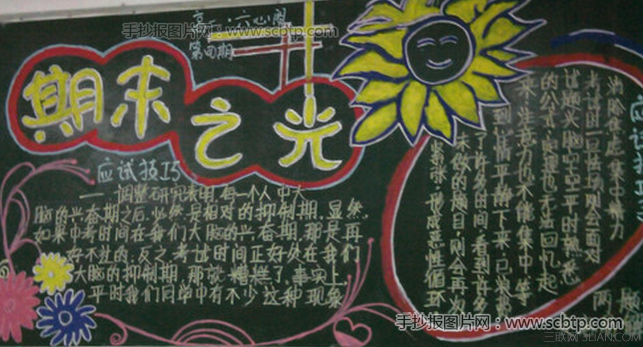 手抄报图片网：www.scbtp.com
第四期
期末之光
应试技巧
一、调整研究表明,每一个人中大
脑的兴奋期之后,必然是相对的抑制期.显然,
如果中考时间在我们大脑的兴奋期,那是再
好不过的;反之,考试时间正好处在我们
大脑的抑制期,那就糟糕了.事实上,
平时我们同学中有不少这种现象
消除焦虑集中精力
考试时一旦
试题火脑中空空平时熟悉
的公式,定理也无法回忆起
来,注意力也不能集中,等
到心情平静下来,已浪费
了许多时间,看到许多
未做的题目,则会再次
紧张,形成恶性循环
手抄报图片网：www.scbtp.com
三联网 3LIAN.COM